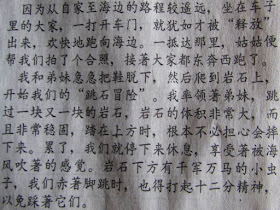 因为从自家至海边的路程较遥远，坐在车子
里的大家，一打开车门，就犹如才被“释放”
出来，欢快地跑向海边。一抵达那里，姑姑便
帮我们拍了个合照，接著大家都东奔西跑了。
我和弟妹急急把鞋脱下，然后爬到岩石上，
开始我们的“跳石冒险”。我率领著弟妹，跳
过一块又一块的岩石，岩石的体积非常大，而
且非常稳固，踏在上方时，根本不必担心会摔
下来。累了，我们就停下来休息，享受著被海
风吹著的感觉。岩石下方有千军万马的小虫
子，我们赤著脚跳时，也得打起十二分精神，
以免踩著它们。